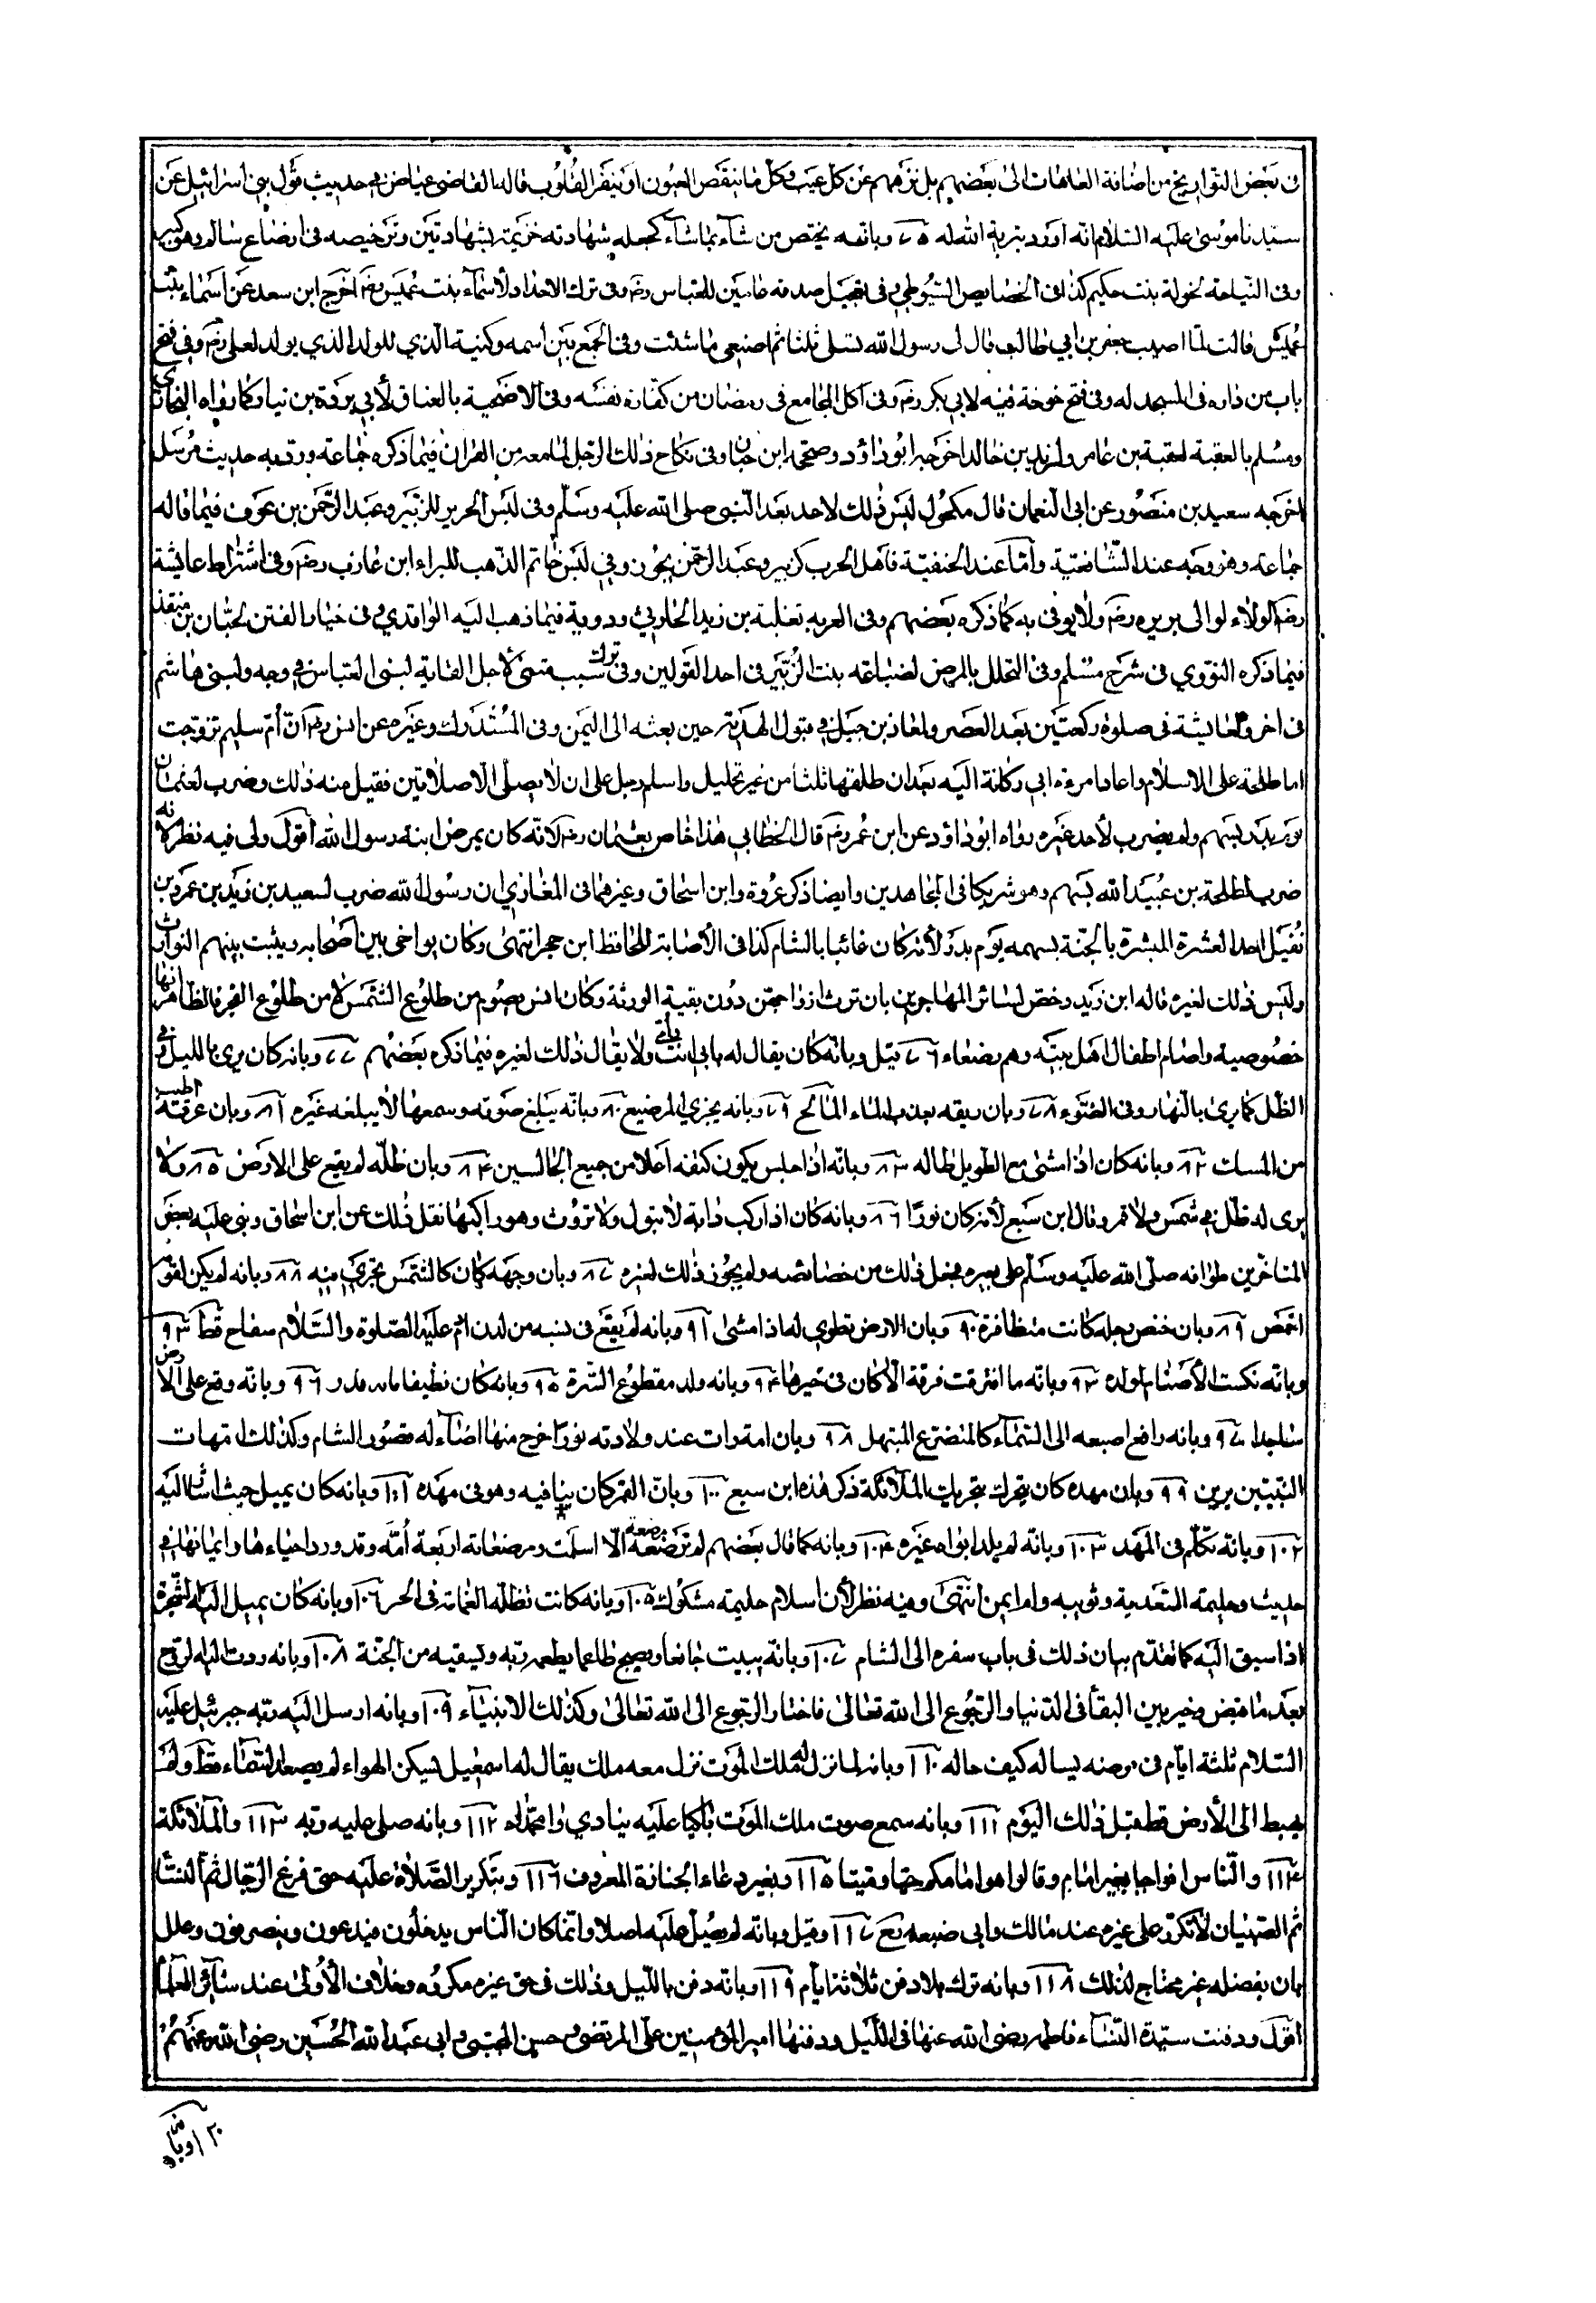 في بعض التواريخ من اضافة العاهات الى بعضهم بل نزههم عن كل عيب وكل ما ينقص العيون او ينفر القلوب قاله القاضي عياض في حديث قول بني اسرائيل عن
سيدنا موسى عليه السلام انه آدر وتبرية الله له ٧٥ وبانه يختص من شاء بما شاء كجعله شهادته خزيمة بشهادتين وترخيصه في ارضاع سالم وهو كبير
وفي النياحة لخولة بنت حكيم كذا في الخصايص السيوطي وفي تعجيل صدقة عامين للعباس رضه وفي ترك الاحداد لأسماء بنت عميس رضه اخرج ابن سعد عن اسماء بنت
عميس قالت لما اصيب جعفر بن ابي طالب قال لي رسول الله تسلى ثلثا ثم اصنعي ما شئت وفي الجمع بين اسمه وكنيته الذي للولد الذي يولد لعلي رضه وفي فتح
باب من داره في المسجد له وفي فتح خوخة فيه لابي بكر رضه وفي اكل المجامع في رمضان من كفارة نفسه وفي الاضحية بالعناق لأبي بردة بن نيار كما رواه البخاري
ومسلم بالعقبة لعقبة بن عامر ولزيد بن خالد اخرجه ابو داؤد وصححه ابن حبان وفي نكاح ذلك الرجل لما معه من القران فيما ذكره جماعة وردعه حديث مرسل
اخرجه سعيد بن منصور عن ابي النعمان قال مكحول ليس ذلك لاحد بعد النبي صلى الله عليه وسلم وفي لبس الحرير للزبير وعبد الرحمن بن عوف فيما قاله
جماعة وهو وجه عند الشافعية وأما عند الحنفية فأهل الحرب كزبير وعبد الرحمن يجوز وفي لبس خاتم الذهب للبراء ابن عازب رضه وفي اشتراط عايشة
رضه الولاء لوالى بريره رضه ولا يوفى به كما ذكره بعضهم وفي العريه تعلبة بن زيد الحارثي ودوية فيما ذهب اليه الواقدي وفي خيار الغبن لحبان بن منقذ
فيما ذكره النووي في شرح مسلم وفي التحلل بالمرض لضباعة بنت الزبير في احد القولين وفي ترك سبب منى لأجل السقاية لبني العباس في وجه ولبني هاشم
في اخر ولعايشة في صلوة ركعتين بعد العصر ولمعاذ بن جبل في قبول الهدية حين بعثه الى اليمن وفي المستدرك وغيره عن انس رضه ان أم سليم تزوجت
ابا طلحة على الاسلام واعاد امرءة ابي ركانة اليه بعد ان طلقها ثلثا من غير تحليل واسلم رجل على ان لا يصلى الا صلاتين فقبل منه ذلك وضرب لعثمان
يوم بدر بسهم ولم يضرب لأحد غيره رواه ابو داؤد عن ابن عمر رضه قال الخطابي هذا خاص بعثمان رضه لانه كان يمرض ابنة رسول الله أقول ولي فيه نظر لانه
ضرب لطلحة بن عبيد الله بسهم وهو شريكا في المجاهدين وايضا ذكر عروة وابن اسحاق وغيرهما في المغازي ان رسول الله ضرب لسعيد بن زيد بن عمرو بن
نفيل احد العشرة المبشرة بالجنة بسهمه يوم بدر لأنه كان غائبا بالشام كذا في الأصابة للحافظ ابن حجر انتهى وكان يواخي بين اصحابه ويثبت بينهم التوارث
وليس ذلك لغيره قاله ابن زيد وخص لسائر المهاجرين بان ترث ازواجهن دون بقية الورثة وكان انس يصوم من طلوع الشمس لا من طلوع الفجر فالظاهر انها
خصوصية واصام اطفال اهل بيته وهم رضعاء ٧٦ قيل وبانه كان يقال له بابي انت وامي ولا يقال ذلك لغيره فيما ذكره بعضهم ٧٧ وبانه كان يرى بالليل وفي
الظل كما يرى بالنهار وفي الضوء ٧٨ وبان ريقه يعذب الماء المالح ٧٩ وبانه يجزي المرضيع ٨٠ وبانه يبلغ صوته وسمعها لا يبلغه غيره ٨١ وبان عرقه اطيب
من المسك ٨٢ وبانه كان اذا مشى مع الطويل طاله ٨٣ وبانه اذا جلس يكون كتفه اعلا من جميع الجالسين ٨٤ وبان ظله لم يقع على الارض ٨٥ ولا
يرى له ظل في شمس ولا قمر وقال ابن سبع لأنه كان نورا ٨٦ وبانه كان اذا ركب دابة لا تبول ولا تروث وهو راكبها نقل ذلك عن ابن اسحاق وبني عليه بعض
المتاخرين طوافه صلى الله عليه وسلم على بعيره فجعل ذلك من خصائصه ولم يجوز ذلك لغيره ٨٧ وبان وجهه كان كالشمس تجري فيه ٨٨ وبانه لم يكن لقدمه
اخمص ٨٩ وبان خنصر رجله كانت متظافرة ٩٠ وبان الارض تطوى له اذا مشى ٩١ وبانه لم يقع في نسبه من لدن ادم عليه الصلوة والسلام سفاح قط ٩٢
وبانه نكست الأصنام لمولده ٩٣ وبانه ما افترقت فرقة الا كان في خيرها ٩٤ وبانه ولد مقطوع السرة ٩٥ وبانه كان نظيفا ما به قدر ٩٦ وبانه وقع على الارض
ساجدا ٩٧ وبانه رافع اصبعه الى السماء كالمتضرع المبتهل ٩٨ وبان امه رات عند ولادته نورا خرج منها اضاء له قصور الشام وكذلك امهات
النبيين يرين ٩٩ وبان مهده كان يتحرك بتحريك الملائكة ذكر هذه ابن سبع ١٠٠ وبان القمر كان يناغيه وهو في مهده ١٠١ وبانه كان يميل حيث اشار اليه
١٠٢ وبانه تكلم في المهد ١٠٣ وبانه لم يلد ابواه غيره ١٠٤ وبانه كما قال بعضهم لم ترضعه مرضعة الا اسلمت ومرضعاته اربعة أمه وقد ورد احياءها وايمانها في
حديث وحليمة السعدية وثويبه وام ايمن انتهى وفيه نظر لأن اسلام حليمة مشكوك ١٠٥ وبانه كانت تظله الغمامة في الحر ١٠٦ وبانه كان يميل اليه الشجرة
اذا سبق اليه كما تقدم بيان ذلك في باب سفره الى الشام ١٠٧ وبانه يبيت جائعا ويصبح طاعما يطعمه ربه ويسقيه من الجنة ١٠٨ وبانه ردت اليه الروح
بعد ما قبض وخير بين البقأ في الدنيا والرجوع الى الله تعالى فاختار الرجوع الى الله تعالى وكذلك الانبياء ١٠٩ وبانه ارسل اليه ربه جبرئيل عليه
السلام ثلثة ايام في مرضه يساله كيف حاله ١١٠ وبانه لما نزل له ملك الموت نزل معه ملك يقال له اسمعيل يسكن الهواء لم يصعد السماء قط ولم
يهبط الى الأرض قط قبل ذلك اليوم ١١١ وبانه سمع صوت ملك الموت باكيا عليه ينادي وامحمداه ١١٢ وبانه صلى عليه ربه ١١٣ والملائكة
١١٤ والناس افواجا بغير امام وقالوا هو امامكم حيا وميتا ١١٥ وبغير دعاء الجنازة المعروف ١١٦ وبتكرير الصلاة عليه حتى فرغ الرجال ثم النساء
ثم الصبيان لا تكرر على غيره عند مالك وابي حنيفه رح ١١٧ وقيل وبانه لم يصل عليه اصلا وانما كان الناس يدخلون فيدعون وينصرفون وعلل
بان بفضله غير محتاج لذلك ١١٨ وبانه ترك بلا دفن ثلاثة ايام ١١٩ وبانه دفن بالليل وذلك في حق غيره مكروه وخلاف الأولى عند سائر العلمأ
اقول ودفنت سيدة النساء فاطمه رضي الله عنها في الليل ودفنها امير المؤمنين علي المرتضى وحسن المجتبى وابي عبد الله الحسين رضي الله عنهم
١٢٠ وبانه